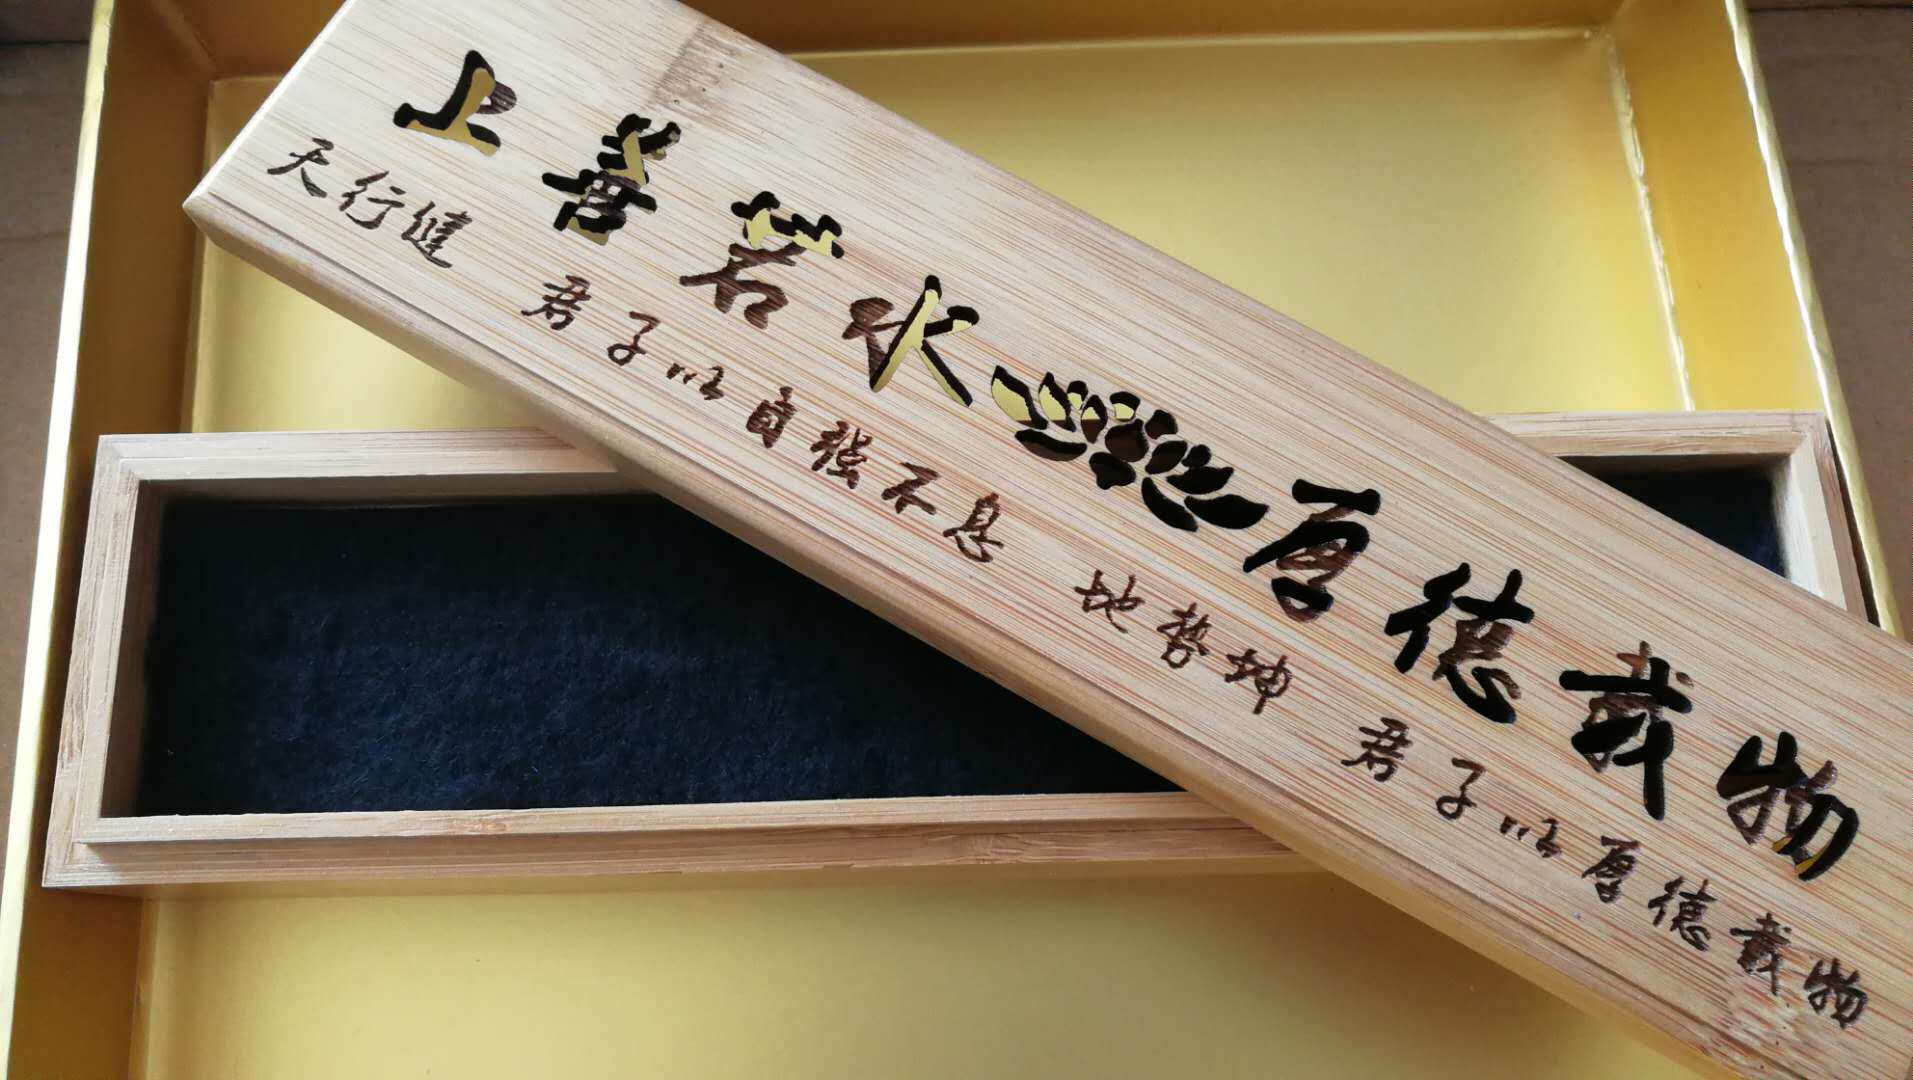 上善若水 厚德载物
天行健 君子以自强不息 地势坤 君子以厚德载物